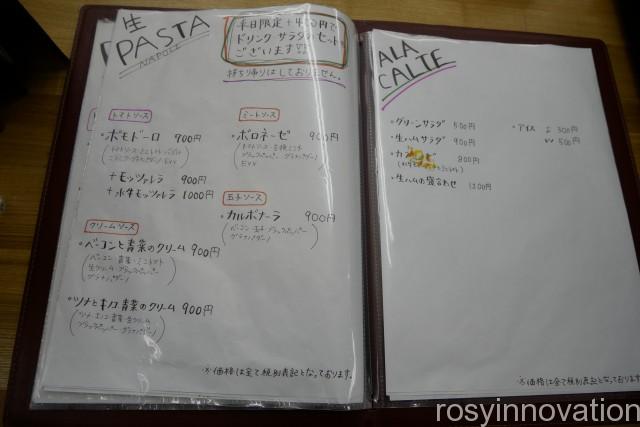 生
PASTA
NAPOLI
平日限定+400円で
ドリンク サラダのセット
ございます!!
持ち帰りはしておりません。
トマトソース
・ポモドーロ 900円
+モッツァレラ 900円
+水牛モッツァレラ 1000円
ミートソース
・ボロネーゼ 900円
玉子ソース
・カルボナーラ 900円
クリームソース
・ベーコンと青菜のクリーム 900円
(ベーコン・青菜・ミニトマト
生クリーム・ブラックペッパー
グラナパダーノ)
・ツナとキノコ青菜のクリーム 900円
※価格は全て税別表記となっております。
ALA
CALTE
・グリーンサラダ 500円
・生ハムサラダ 900円
800円
・生ハムの盛合わせ 1200円
・アイス S 300円
W 500円
※価格は全て税別表記となっております。
rosyinnovation